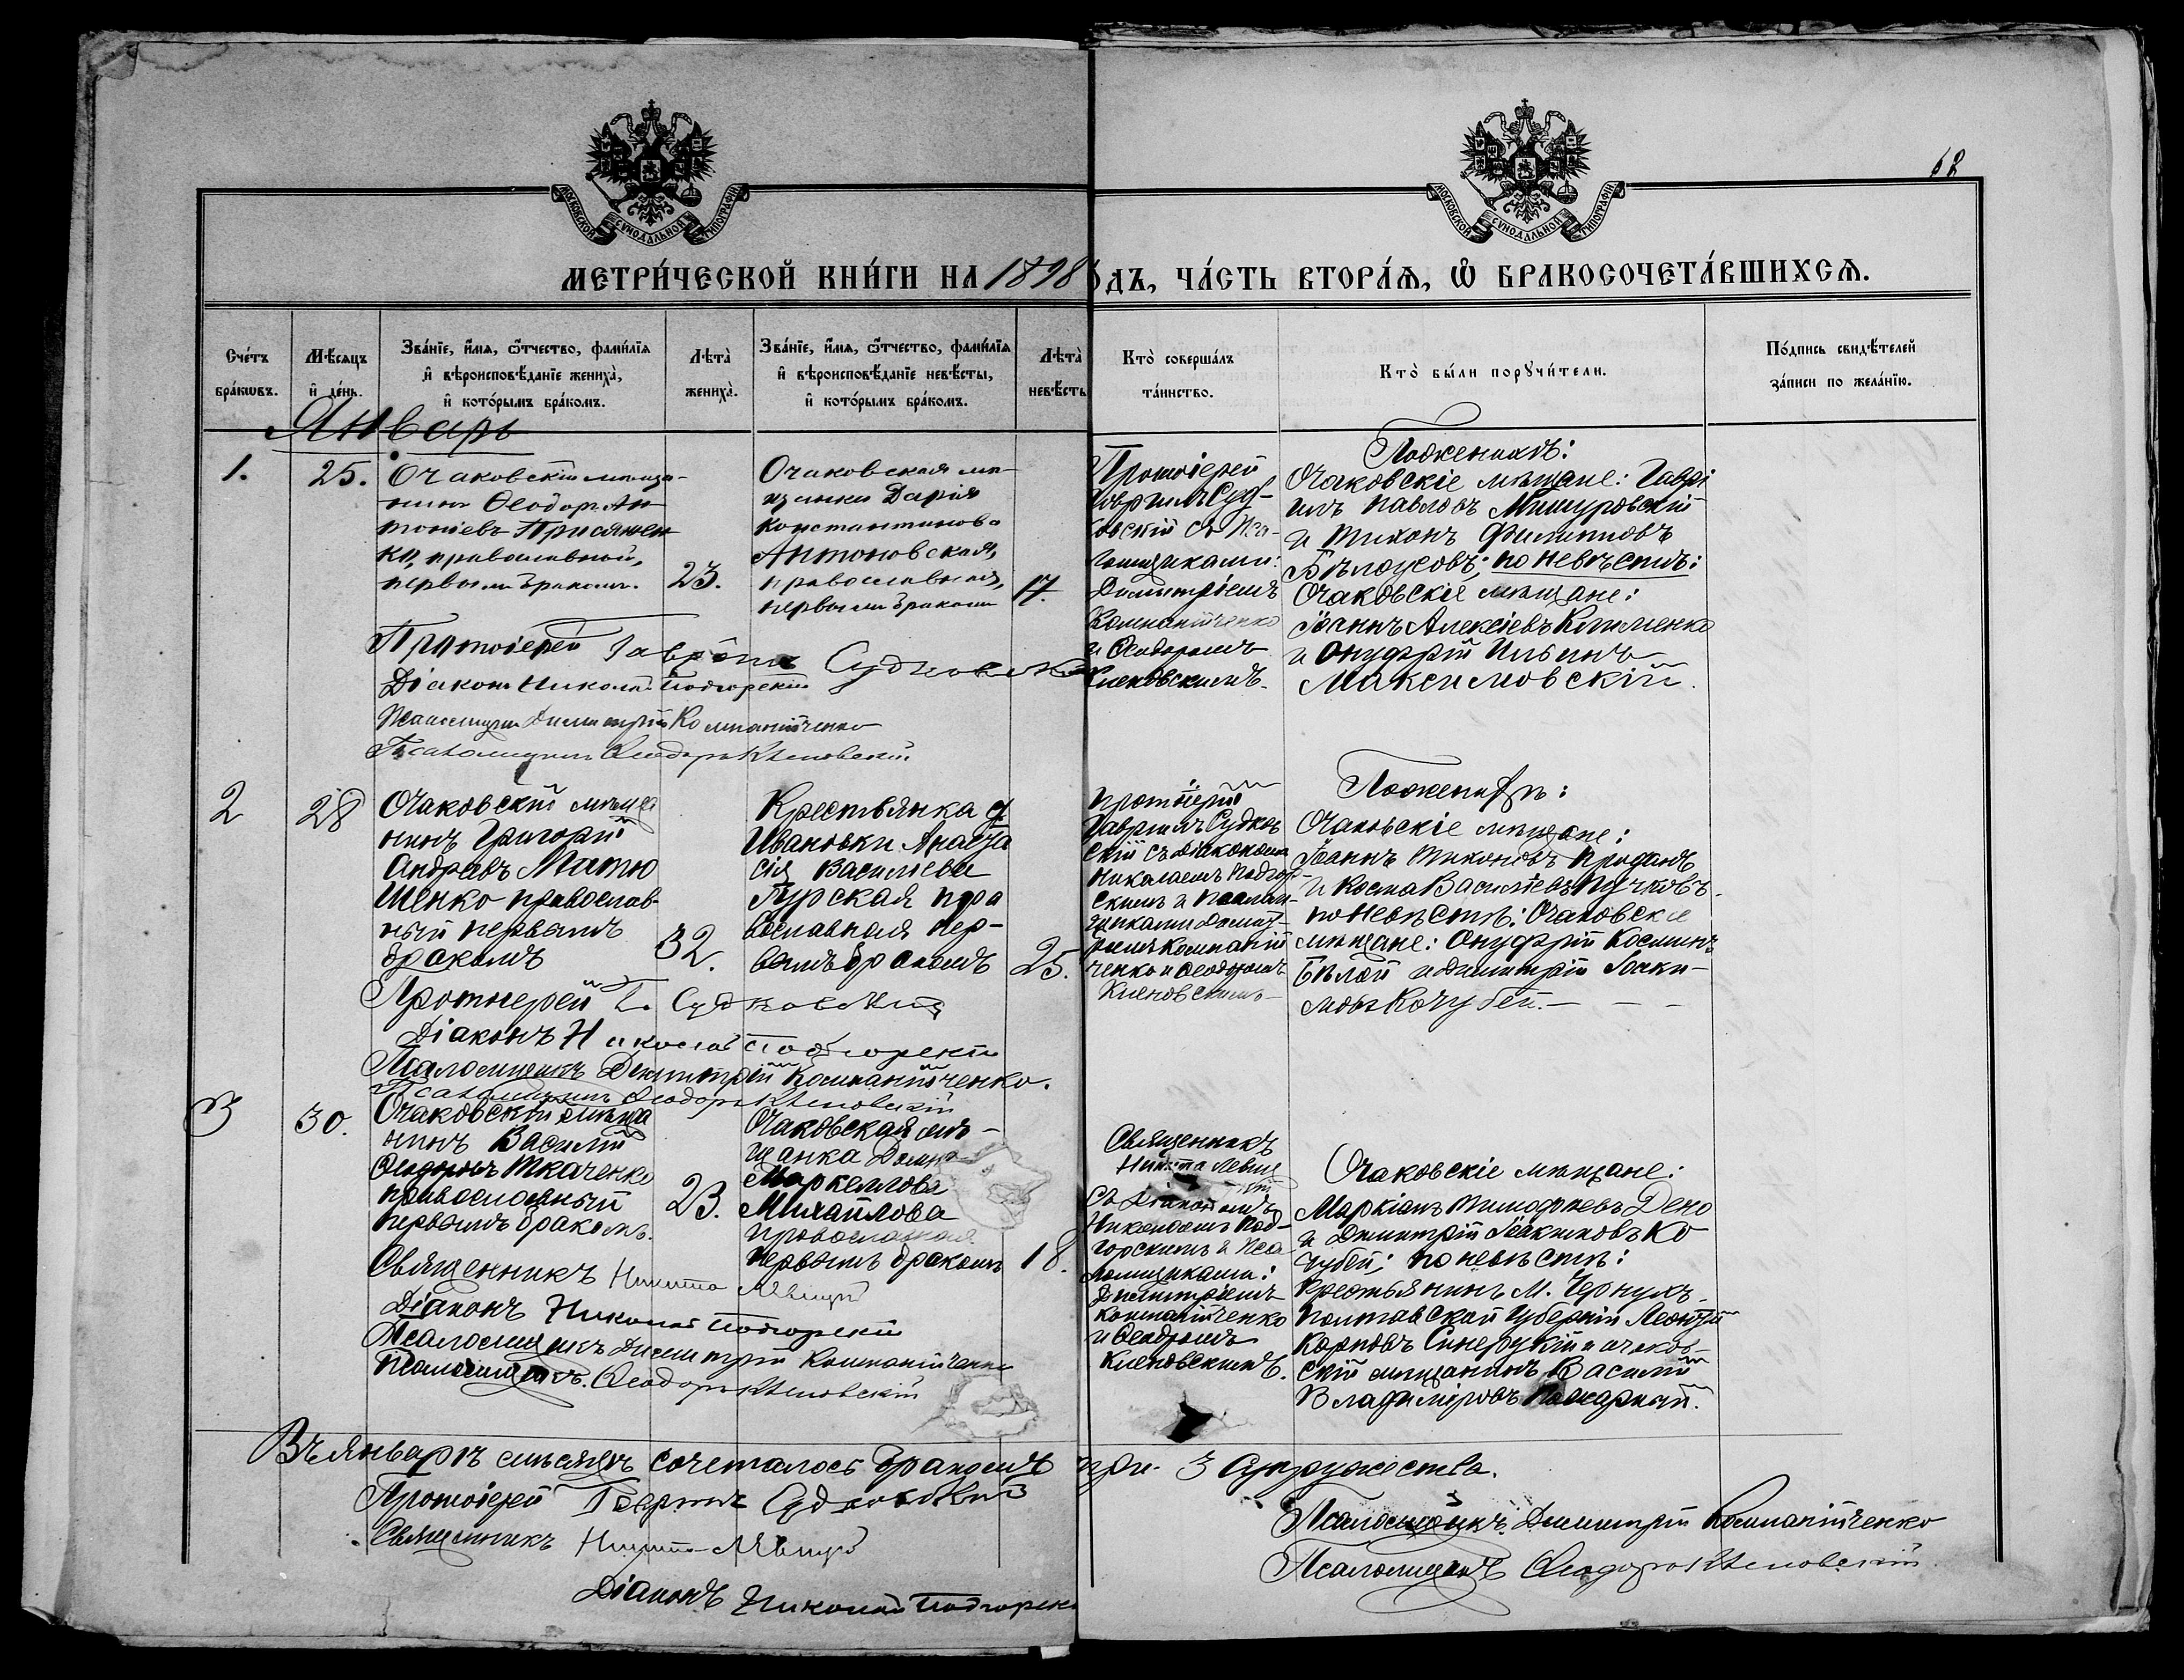 МОСКОВСКОЙ СѴНОДАЛЬНОЙ ТИПОГРАФІИ
МОСКОВСКОЙ СѴНОДАЛЬНОЙ ТИПОГРАФІИ
68
МЕТРИ́ЧЕСКОЙ КНИ́ГИ НА 1898
ОДЪ, ЧА́СТЬ ВТОРА́Ѧ, Ѡ҆ БРАКОСОЧЕТА́ВШИХСѦ.
Сче́тъ
бра́кѡвъ.
Мѣ́сѧцъ
и҆ де́нь.
Зва́нїе, и҆́мѧ, ѻ҆́тчество, фамѝлїѧ
и҆ вѣроисповѣ́данїе жениха̀,
и҆ кото́рымъ бра́комъ.
Лѣта̀
жениха̀.
Зва́нїе, и҆́мѧ, ѻ҆́тчество, фамѝлїѧ
и҆ вѣроисповѣ́данїе невѣ́сты,
и҆ кото́рымъ бра́комъ.
Лѣта̀
невѣ́сты
Кто̀ соверша́лъ
та́инство.
Кто̀ бы́ли порꙋчи́тели.
По́дпись свидѣ́телей
за́писи по жела́нїю.
Январь
1.
25.
Очаковскій мѣща-
нинъ Ѳеодоръ Ан
тоніевъ Присяжен
ко, православный,
первымъ бракомъ.
23.
Очаковская мѣ-
щанка Дарія
Константинова
Антоновская,
православная,
первымъ бракомъ
17.
Протоіерей
Гавріилъ Суд-
ковскій съ Пса-
ломщиками:
Димитріемъ
Компанійченко
и Ѳеодоромъ
Кнеловскимъ.
По женихѣ:
Очаковскіе мѣщане: Гаврі
илъ Павловъ Мишуровскій
и Тихонъ Филипповъ
Бѣлоусовъ; по невѣстѣ:
Очаковскіе мѣщане:
Іоаннъ Алексіевъ Клименко
и Онуфрій Ильинъ
Максимовскій.
Протоіерей Гавріилъ Судковскій
Діаконъ Николай Подгорскій
Псаломщикъ Димитрій Компанійченко
Псаломщикъ Ѳеодоръ Кнеловскій
2
28
Очаковскій мѣща
нинъ Григорій
Андреевъ Матю
шенко православ-
ный первымъ
бракомъ
32.
Крестьянка д.
Ивановки Анаста
сія Васильева
Гурская пра
вославная пер-
вымъ бракомъ
25.
Протоіерей
Гавріилъ Судков
скій съ Діакономъ
Николаемъ Подгор-
скимъ и Псалом-
щиками Димит-
ріемъ Компаній
ченко и Ѳеодоромъ
Кнеловскимъ
По женихѣ:
Очаковскіе мѣщане:
Іоаннъ Тихоновъ Проданъ
и Косма Васильевъ Пучковъ.
по невѣстѣ: Очаковскіе
мѣщане: Онуфрій Косминъ
Бѣлой и Димитрій Іоаки-
мовъ Кочубей. — — —
Протоіерей Г. Судковскій
Діаконъ Николай Подгорскій
Псаломщикъ Димитрій Компанійченко.
Псаломщикъ Ѳеодоръ Кнеловскій
3
30.
Очаковскій мѣща
нинъ Василій
Ѳеодоровъ Ткаченко
православный
первымъ бракомъ.
23.
Очаковская мѣ-
щанка Домна
Маркеллова
Михайлова
православная
первымъ бракомъ
18.
Священникъ
Никита Левиц
кій
съ Діакономъ
Николаемъ Под-
горскимъ и Пса
ломщиками:
Димитріемъ
Компанійченко
и Ѳеодоромъ
Кнеловскимъ.
Очаковскіе мѣщане:
Маркіанъ Тимофеевъ Дено
и Димитрій Іоакимовъ Ко
чубей; по невѣстѣ:
Крестьянинъ М. Чернухъ
Полтавской губерніи Леонтій
Карповъ и очаков-
скій мѣщанинъ Василій
Владиміровъ Пожарный.
Священникъ Никита Левицкій
Діаконъ Николай Подгорскій
Псаломщикъ Димитрій Компанійченко
Псаломщикъ. Ѳеодоръ Кнеловскій
Въ январѣ мѣсяцѣ сочеталось бракомъ три 3 супружества.
Протоіерей Гавріилъ Судковскій
Священникъ Никита Левицкій
Діаконъ Николай Подгорскі
Псаломщикъ Димитрій Компанійченко
Псаломщикъ Ѳеодоръ Кнеловскій